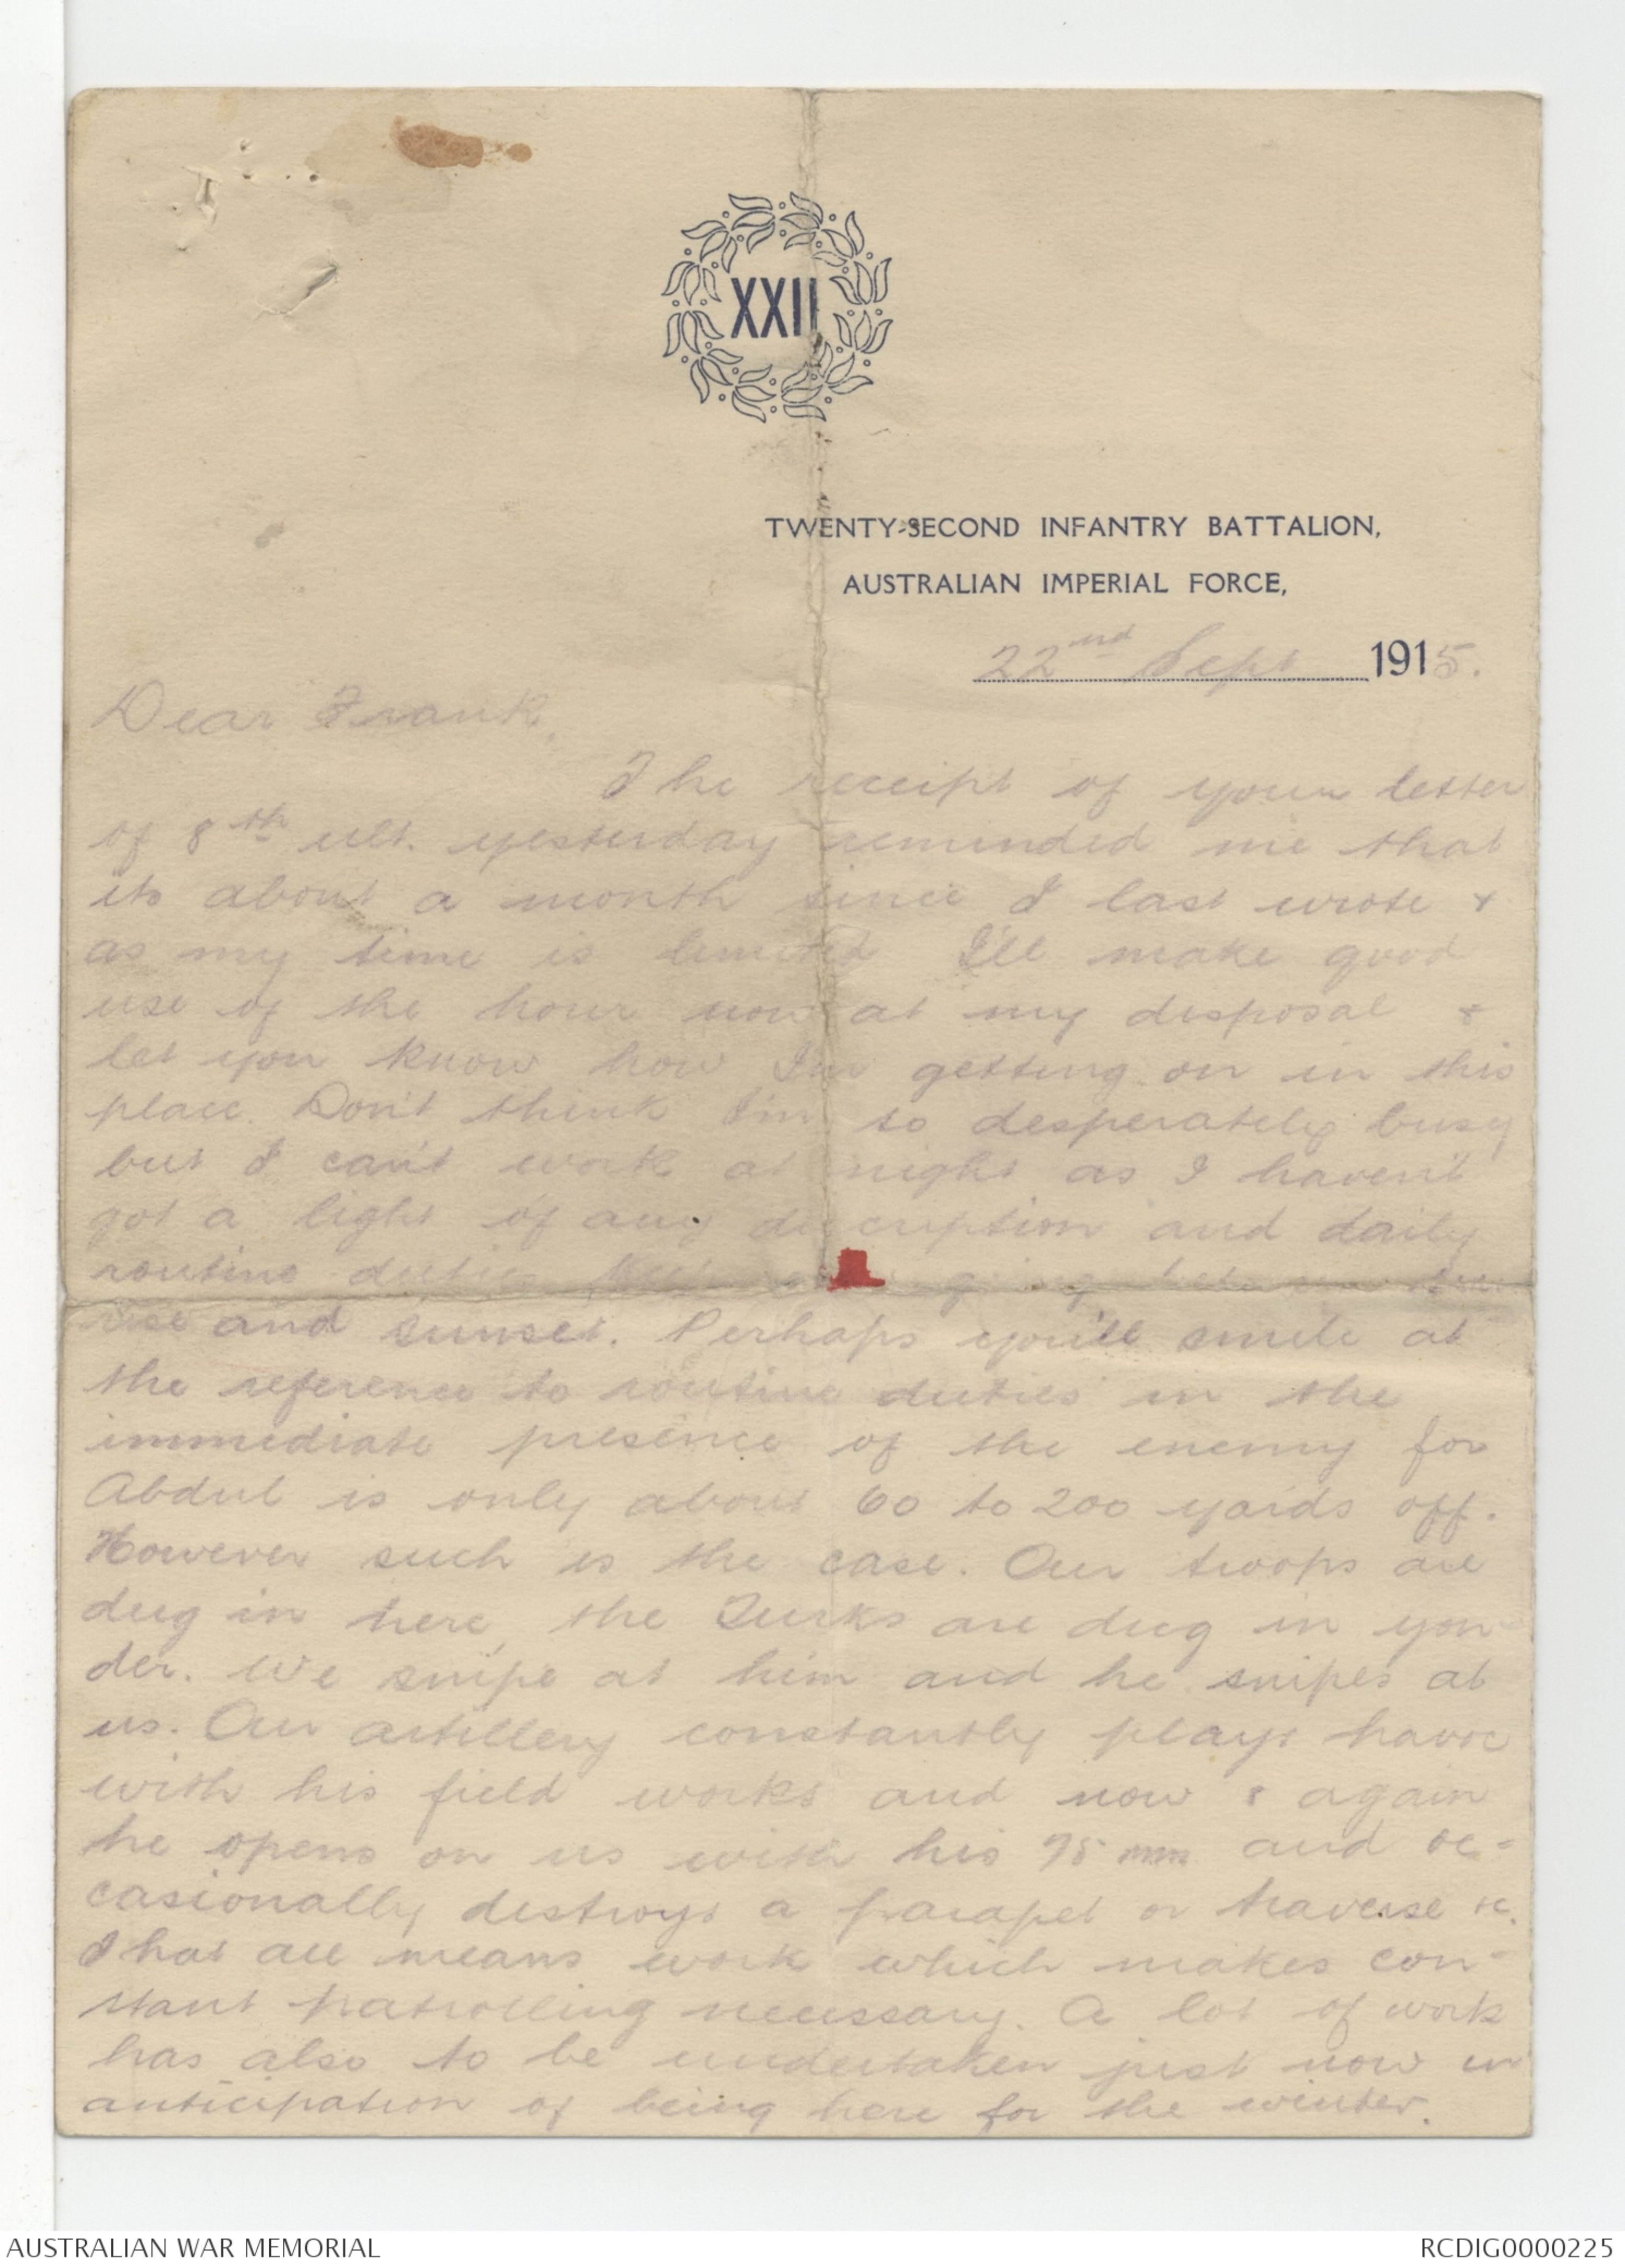 XXII
TWENTY-SECOND INFANTRY BATTALION,
AUSTRALIAN IMPERIAL FORCE,
22nd Sept 1915.
Dear Frank,
The receipt of your letter
of 8th ult. yesterday reminded me that
its about a month since I last wrote &
as my time is limited I'll make good
use of the hour now at my disposal &
let you know how I'm getting on in this
place. Don't think I'm so desperately busy
but I can't work at night as I haven't
got a light of any description and daily
routine duties keep going between sun
rise and sunset. Perhaps you'll smile at
the reference to routine duties in the
immediate presence of the enemy for
Abdul is only about 60 to 200 yards off.
However such is the case. Our troops are
dug in here, the Turks are dug in yon-
der. We snipe at him and he snipes at
us. Our artillery constantly plays havoc
with his field works and now & again
he opens on us with his 75 mm and oc-
casionally destroys a parapet or traverse &c.
That all means work which makes con-
stant patrolling necessary. A lot of work
has also to be undertaken just now in
anticipation of being here for the winter.
AUSTRALIAN WAR MEMORIAL
RCDIG0000225